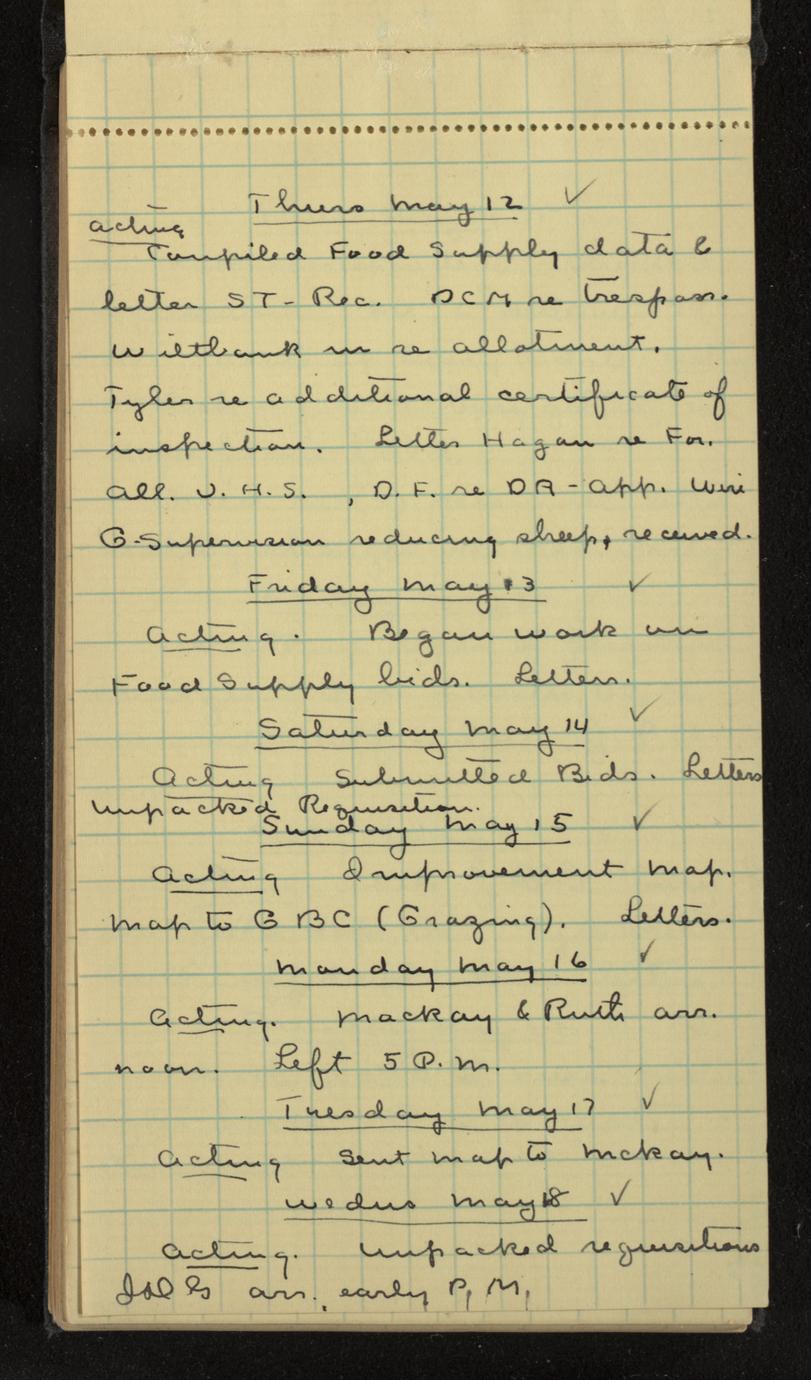 Thurs May 12 ✓
Acting
Compiled Food Supply data &
letter ST- Rec. DCM re trespass.
Wiltbank in re allotment.
Tyler re additional certificate of
inspection. Letter Hagan re For.
All. U.H.S. , D.F. re DR-App. Wire
G-Supervision reducing sheep, received.
Friday May 13 ✓
Acting. Began work on
Food Supply bids. Letters.
Saturday May 14 ✓
Acting Submitted Bids. Letters
Unpacked Requisition.
Sunday May 15 ✓
Acting Improvement Map.
Map to GBC (Grazing). Letters.
Monday May 16 ✓
Acting. Mackay & Ruth arr.
noon. Left 5 P.M.
Tuesday May 17 ✓
Acting Sent map to McKay.
Wednes May 18 ✓
Acting. Unpacked requisitions
arr. early P.M.